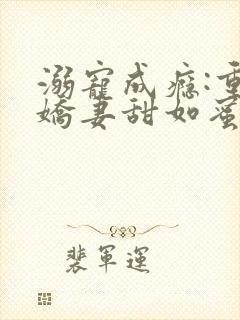 溺寵成癮:重
嬌妻甜如蜜
裴軍運